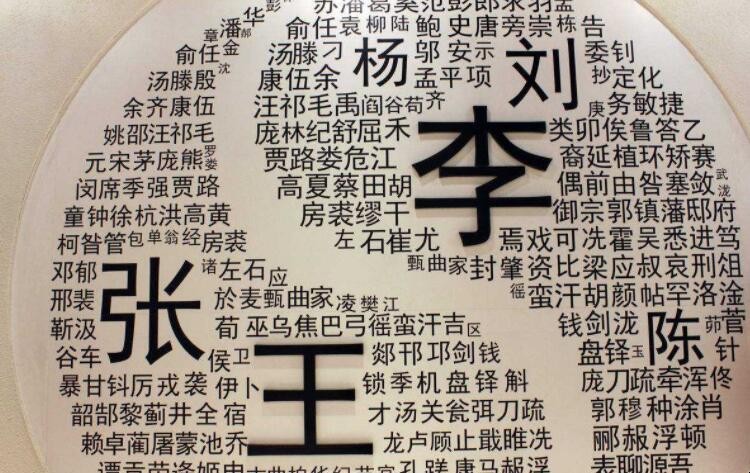 苏潘葛奚范彭郎
潘华
俞任袁柳陆鲍史唐旁崇栋告
章俞任金
汤滕刁杨邬安示刘委钊
汤滕殷沈
康伍余孟平项抄定化
余齐康伍
汪祁毛禹阎谷荀齐李庚务敏捷
姚邵汪祁毛
庞林纪舒屈禾类卯俟鲁答乙
元宋茅庞熊罗娄
贾路娄危江裔延植环矫赛
闵席季强贾路
高夏蔡田胡偶前由咎塞敛武泷
童钟徐杭洪高黄
房裘缪干御宗郭镇藩邸府
柯昝管包单翁经房裘
左石崔尤焉戏可冼霍吴悉进笃
邓郁张诸左石应
甄曲家封肇资比梁应叔哀刑俎
邢裴於麦甄曲家凌樊江
徭蛮汗胡颜帖罕洛淦
靳汲荀巫乌焦巴弓徭蛮汗吉区
钱剑泷陈茆菅
谷车侯卫王郯邗邛剑钱
盘铎玉针
暴甘钭厉戎袭伊卜锁季机盘铎斛
庞刀疏牵浑佟
韶郜黎蓟井全宿才汤关瓮弭刀疏
郭穆种涂肖
赖卓蔺屠蒙池乔龙卢顾止戢睢冼
郦郝浮顿
谭贡劳逄姬申
孔蹉康马郝浮
表聊源吾